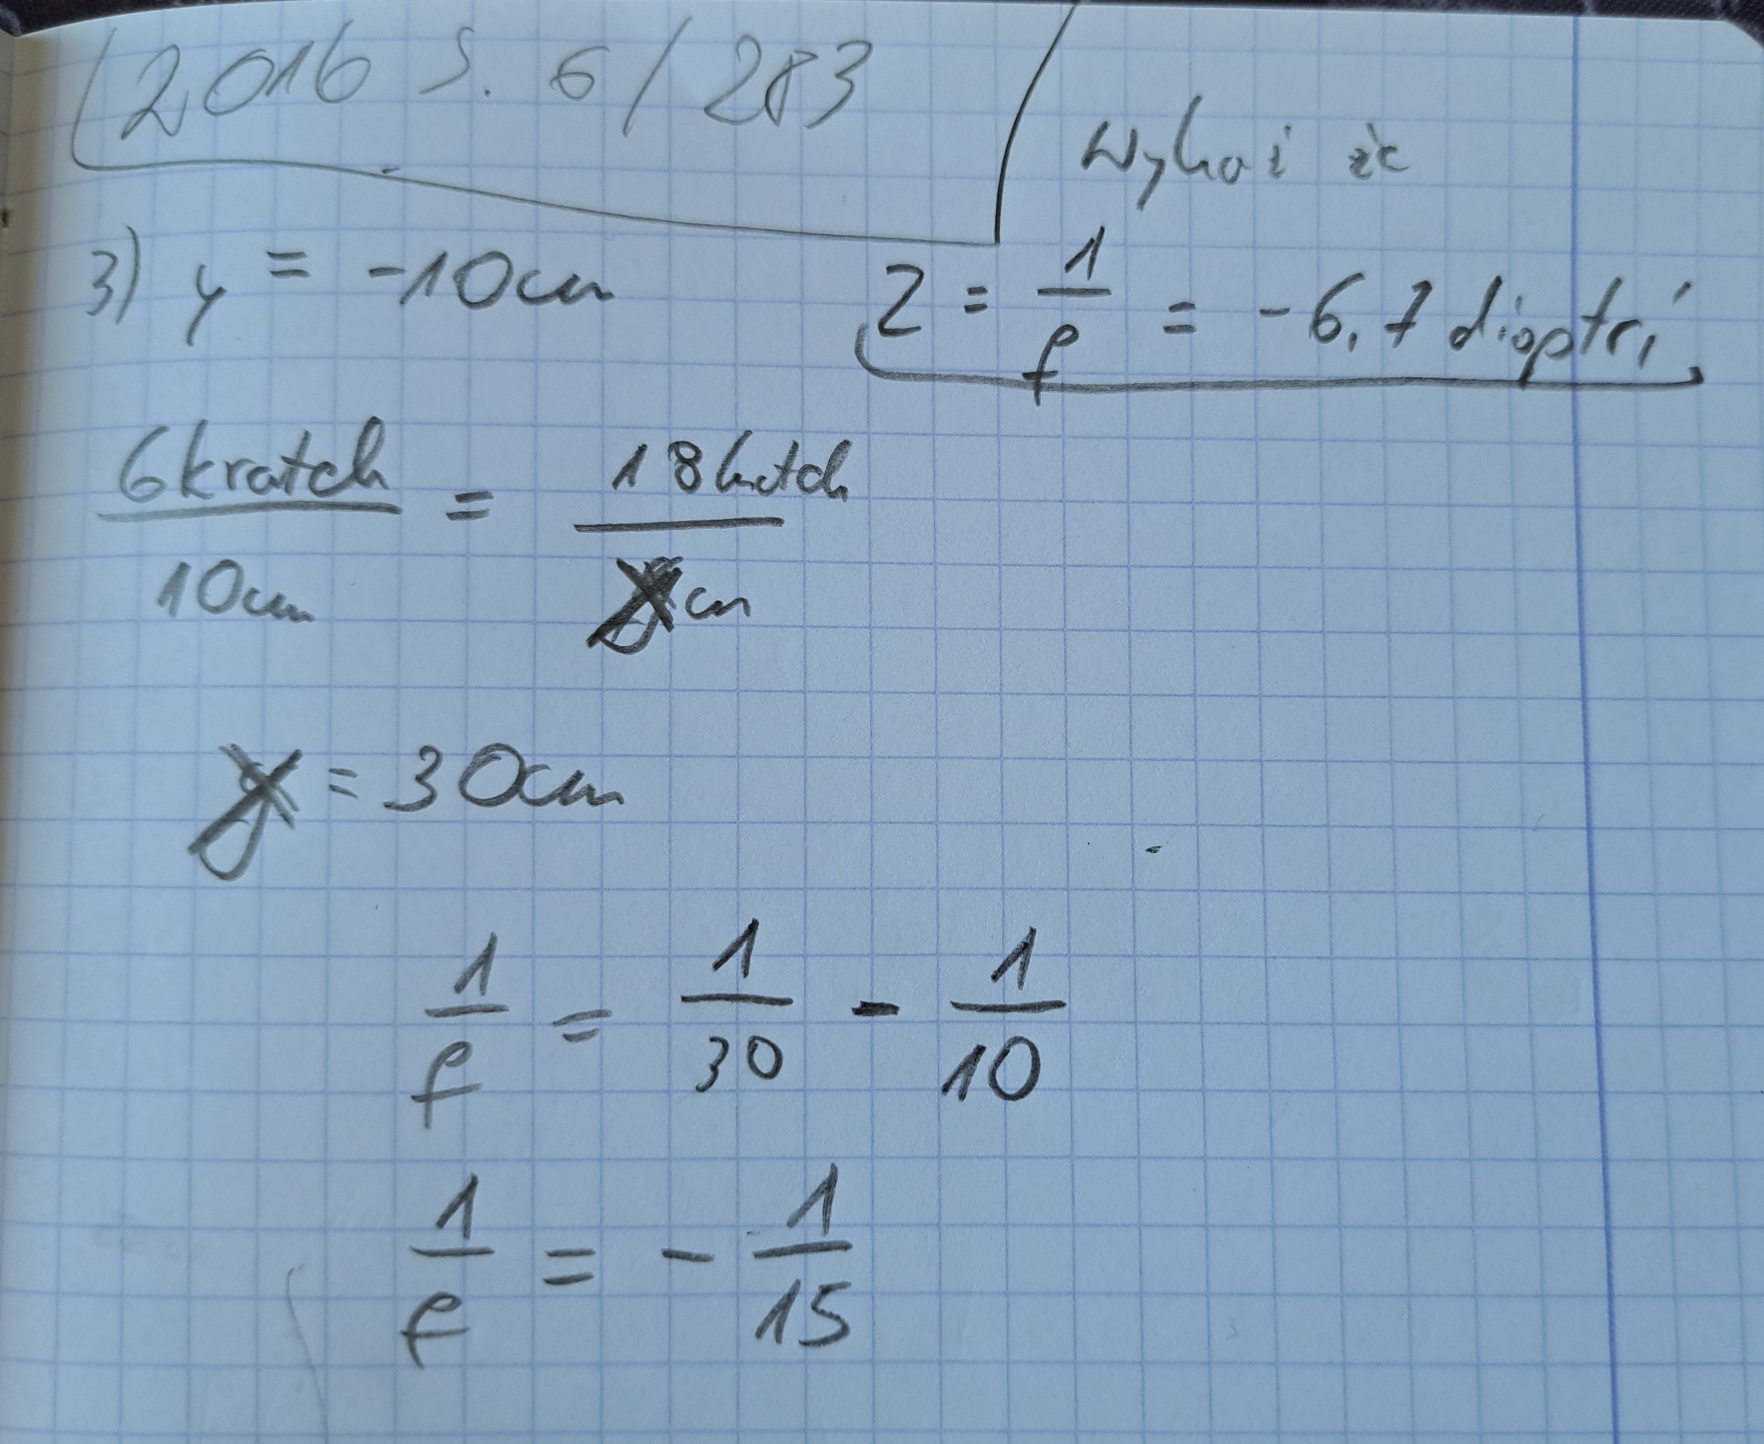 2016 s. 6/283
Wykaż że
3) y = -10cm
Z = 1/f = -6,7 dioptrii
6kratek/10cm = 18kratek/x cm
x = 30cm
1/f = 1/30 - 1/10
1/f = -1/15